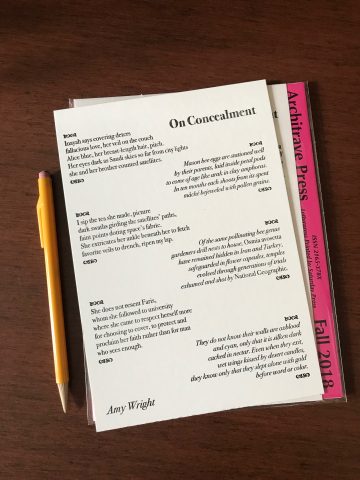 On Concealment
Inayah says covering deters
fallacious love, her veil on the couch
Alice blue, her breast-length hair, pitch.
Her eyes dark as Saudi skies so far from city lights
she and her brother counted satellites.
Mason bee eggs are stationed well
by their parents, laid inside petal pods
to come of age like arak in clay amphorae.
In ten months each shoots from its spent
mâché bejeweled with pollen grains.
I sip the tea she made, picture
dark swaths girding the satellites' paths,
faint points dotting space's fabric.
She extricates her ankle beneath her to fetch
favorite veils to drench, ripen my lap.
Of the same pollinating bee genus
gardeners drill nests to house, Osmia avosetta
have remained hidden in Iran and Turkey,
safeguarded in flower capsules, temples
evolved through generations of trials
exhumed and shot by National Geographic.
She does not resent Faris,
whom she followed to university
where she came to respect herself more
for choosing to cover, to protect and
proclaim her faith rather than for man
who sees enough.
They do not know their walls are oxblood
and cyan, only that it is silken dark
cached in nectar. Even when they exit,
wet wings kissed by desert candles,
they know only that they slept alone with gold
before word or color.
Amy Wright
Architrave Press
Letterpress Printed
ISSN 2165-378X
Fall 2018